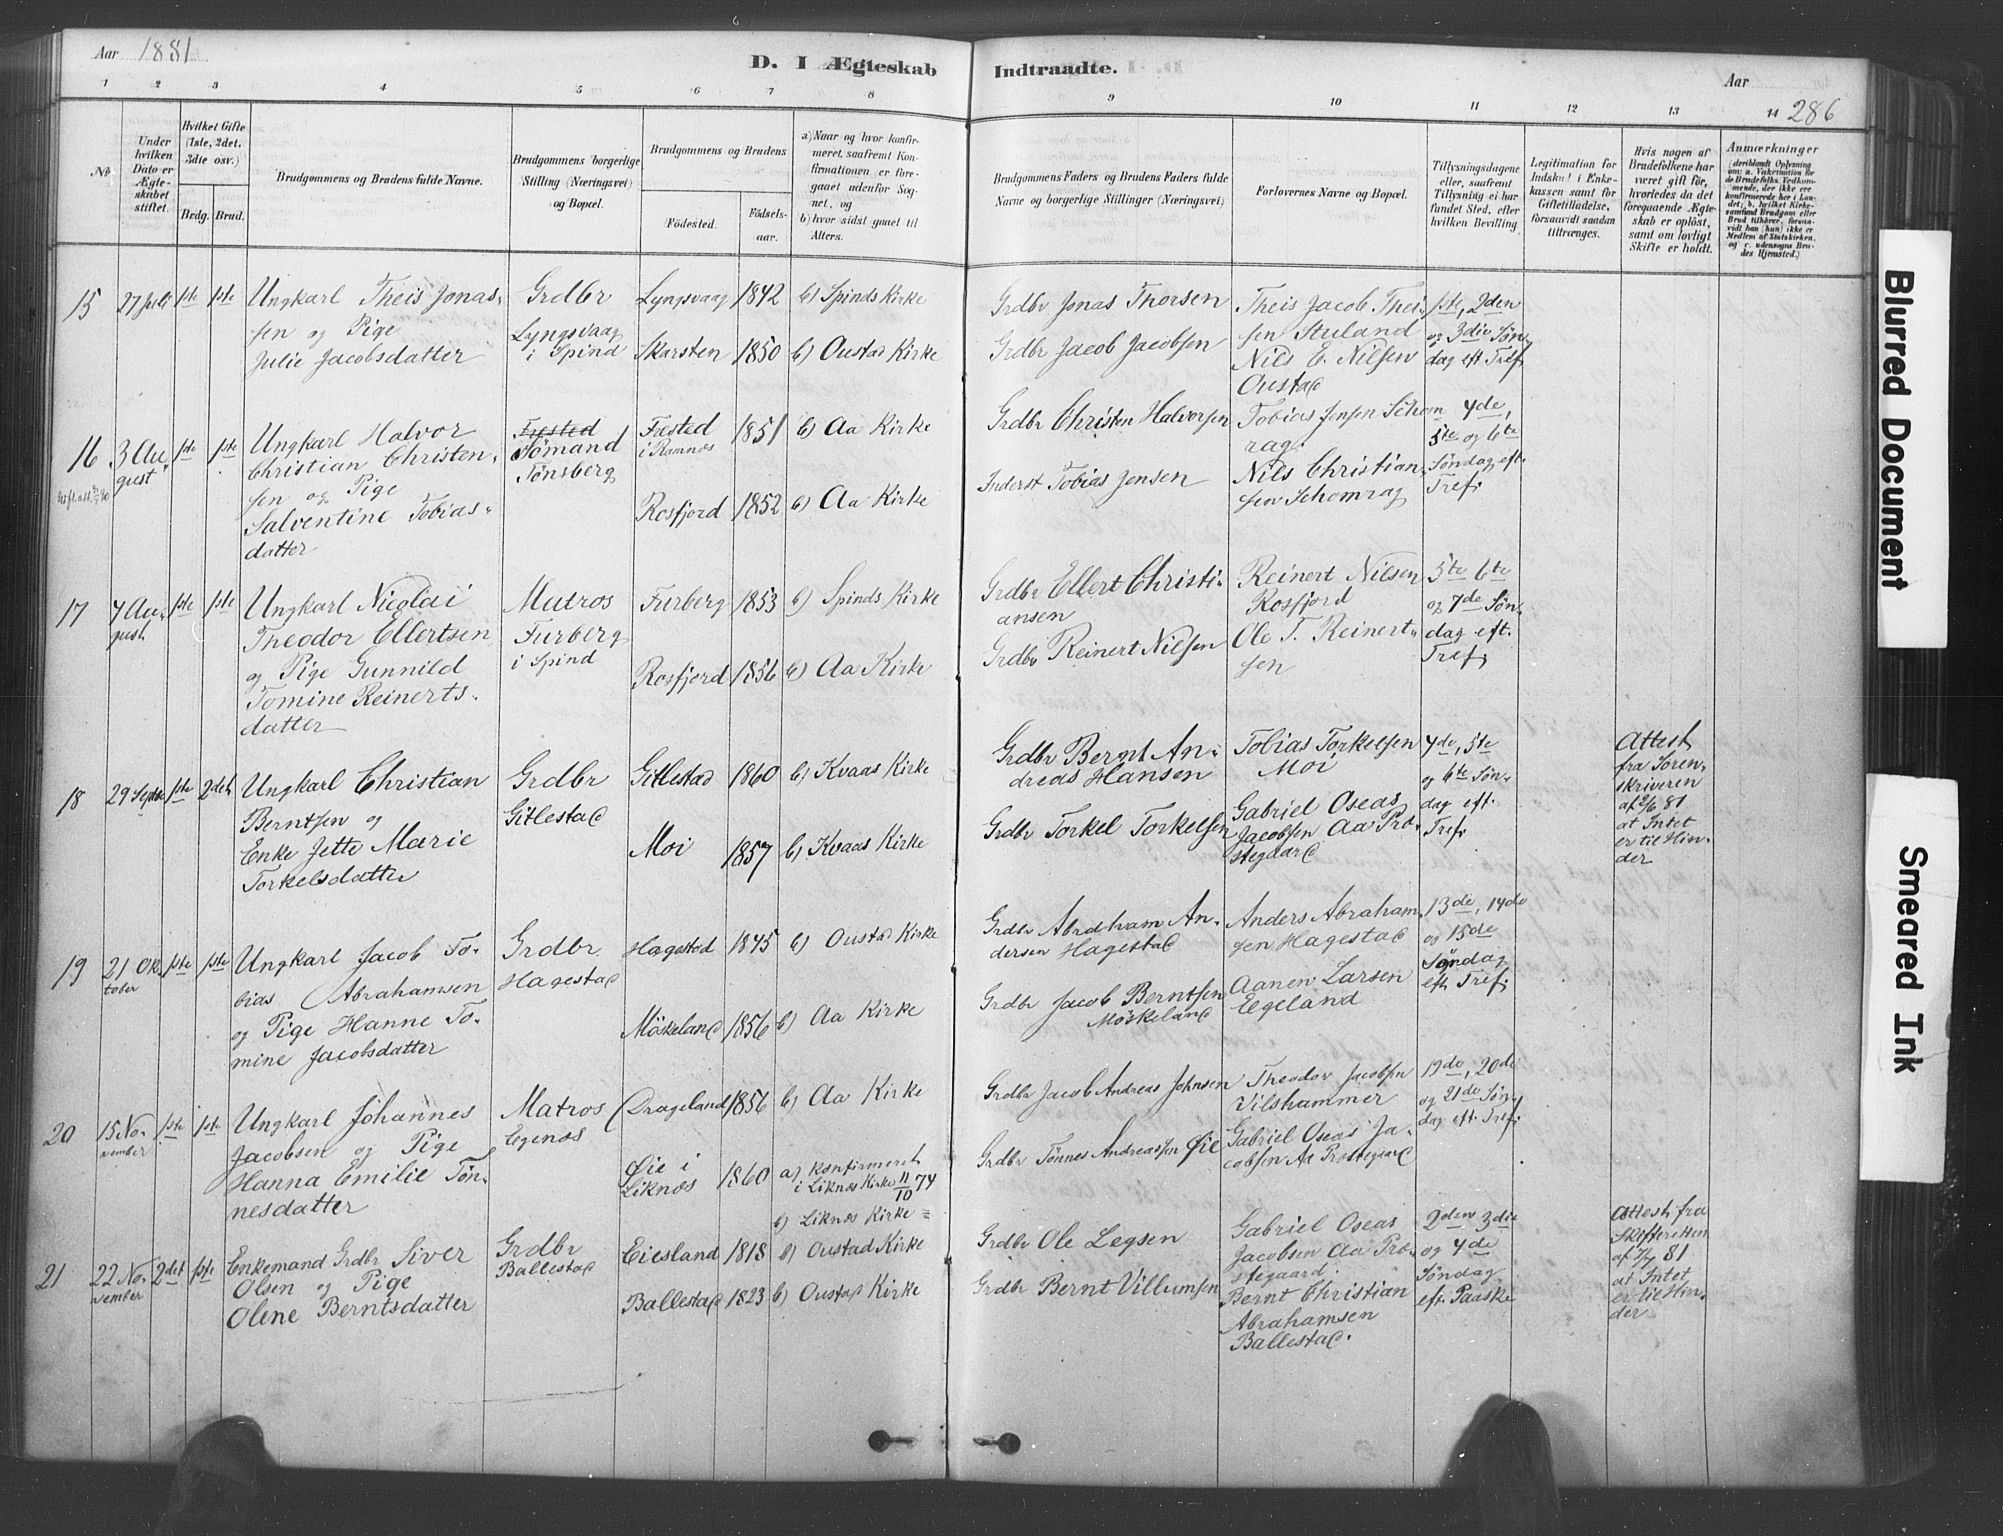 Aar 1881
D. I Ægteskab Indtraadte.
Aar
286
1 2 3 4 5 6 7 8 9 10 11 12 13 14
No
Under hvilken Dato er Ægteskabet stiftet.
Hvilket Gifte (1ste, 2det, 3die osv.)
Brdg. Brud.
Brudgommens og Brudens fulde Navne.
Brudgommens borgerlige Stilling (Næringsvei) og Bopæl.
Brudgommens og Brudens
Fødested.
Fødselsaar.
a) Naar og hvor konfirmeret, saafremt Konfirmationen er foregaaet udenfor Sognet, og
b) hvor sidst gaaet til Alters.
Brudgommens Faders og Brudens Faders fulde Navne og borgerlige Stillinger (Næringsvei)
Forlovernes Navne og Bopæl.
Tillysningsdagene eller, saafremt Tillysning ei har fundet Sted, efter hvilken Bevilling.
Legitimation for Indskud i Enkekassen samt for Giftetilladelse, forsaavidt saadan tiltrænges.
Hvis nogen af Brudefolkene har været gift før, hvorledes da det foregaaende Ægteskab er opløst, samt om lovligt Skifte er holdt.
Anmærkninger
15 27 Juli 1ste 1ste
Ungkarl Theis Jonas-
sen og Pige
Julie Jacobsdatter
Grdbr
Lyngsvaag
i Spind
Lyngsvaag 1842 b) Spinds Kirke
Skarsten 1850 b) Oustad Kirke
Grdbr Jonas Thorsen
Grdbr Jacob Jacobsen
Theis Jacob Thei-
sen Stuland
Nils E. Nilsen
Oustad
1ste, 2den
og 3die Søn-
dag eft. Tref.
16 3 Au-
gust 1ste 1ste
Ungkarl Halvor
Christian Christen-
sen og Pige
Salventine Tobias-
datter
Frested
Sømand
Tønsberg
Frested
i Ramnæs 1851 b) Aa Kirke
Rosfjord 1852 b) Aa Kirke
Grdbr Christen Halvorsen
Inderst Tobias Jensen
Tobias Jensen Schom
rag.
Nils Christian-
sen Schomrag
4de,
5te og 6te
Søndag eft.
Tref.
17 7 Au-
gust 1ste 1ste
Ungkarl Nicolai
Theodor Ellertsen
og Pige Gunnild
Tomine Reinerts-
datter
Matros
Furberg
i Spind
Furberg 1853 b) Spinds Kirke
Rosfjord 1856 b) Aa Kirke
Grdbr Ellert Christi-
ansen
Grdbr Reinert Nilsen
Reinert Nilsen
Rosfjord
Ole T. Reinert-
sen
5te 6te
og 7de Søn-
dag eft.
Tref.
18 29 Septbr 1ste 2det
Ungkarl Christian
Berntsen og
Enke Jette Marie
Torkelsdatter
Grdbr
Gitlestad
Gitlestad 1860 b) Kvaas Kirke
Moi 1857 b) Kvaas Kirke
Grdbr Bernt An-
dreas Hansen
Grdbr Torkel Torkelsen
Tobias Torkelsen
Moi
Gabriel Oseas
Jacobsen Aa Præ-
stegaard
4de, 5te
og 6te Søn-
dag eft.
Tref.
Attest
fra Soren-
skriveren
af 2/6 81
at Intet
er til Hin-
der
19 21 Ok-
tober 1ste 1ste
Ungkarl Jacob To-
bias Abrahamsen
og Pige Hanne To-
mine Jacobsdatter
Grdbr
Hagestad
Hagestad 1845 b) Oustad Kirke
Møskeland 1856 b) Aa Kirke
Grdbr Abraham An-
dersen Hagestad
Grdbr Jacob Berntsen
Møskeland
Anders Abraham-
sen Hagestad
Aanen Larsen
Egeland
13de, 14de
og 15de
Søndag
eft Tref.
20 15 No-
vember 1ste 1ste
Ungkarl Johannes
Jacobsen og Pige
Hanna Emilie Tøn-
nesdatter
Matros
Egenæs
Drageland 1856 b) Aa Kirke
Øie i
Liknæs 1860 a) Konfirmeret
i Liknæs Kirke 11/10 74
b) Liknæs Kirke
Grdbr Jacob Andreas Johnsen
Grdbr Tønnes Andreassen Øie
Theodor Jacobsen
Vilshammer
Gabriel Oseas Ja-
cobsen Aa Præstegaard
19de, 20de
og 21de Søn-
dag eft. Tref.
21 22 No-
vember 2det 1ste
Enkemand Grdbr Siver
Olsen og Pige
Olene Berntsdatter
Grdbr
Ballestad
Eiesland 1818 b) Oustad Kirke
Ballestad 1823 b) Oustad Kirke
Grdbr Ole Legsen
Grdbr Bernt Villumsen
Gabriel Oseas
Jacobsen Aa Præ-
stegaard.
Bernt Christian
Abrahamsen
Ballestad.
2den 3die
og 4de
Søndag
eft. Paaske
Attest fra
Skifteretten
af 7/7 81
at Intet
er til Hin-
der
Blurred Document
Smeared Ink